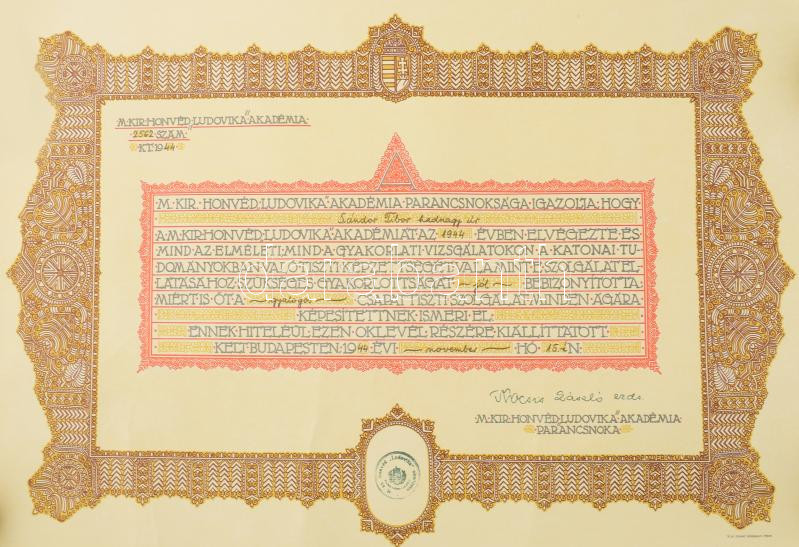 M. KIR. HONVÉD „LUDOVIKA” AKADÉMIA
2562 SZÁM.
KT. 1944
A
M. KIR. HONVÉD „LUDOVIKA” AKADÉMIA PARANCSNOKSÁGA IGAZOLJA, HOGY
Sándor Tibor hadnagy úr
A M. KIR. HONVÉD LUDOVIKA AKADÉMIÁT AZ 1944 ÉVBEN ELVÉGEZTE ÉS
MIND AZ ELMÉLETI, MIND A GYAKORLATI VIZSGÁLATOKON A KATONAI TU-
DOMÁNYOKBAN VALÓ TISZTI KÉPZETTSÉGÉT, VALAMINT E SZOLGÁLAT EL-
LÁTÁSÁHOZ SZÜKSÉGES GYAKORLOTTSÁGÁT jól BEBIZONYÍTOTTA,
MIÉRT IS ŐT A gyalogos CSAPATTISZTI SZOLGÁLAT MINDEN ÁGÁRA
KÉPESÍTETTNEK ISMERI EL.
ENNEK HITELÉÜL EZEN OKLEVÉL RÉSZÉRE KIÁLLÍTTATOTT.
KELT BUDAPESTEN, 1944 ÉVI november HÓ 15.-N.
Kocsis László ezds.
M. KIR. HONVÉD „LUDOVIKA” AKADÉMIA
PARANCSNOKA